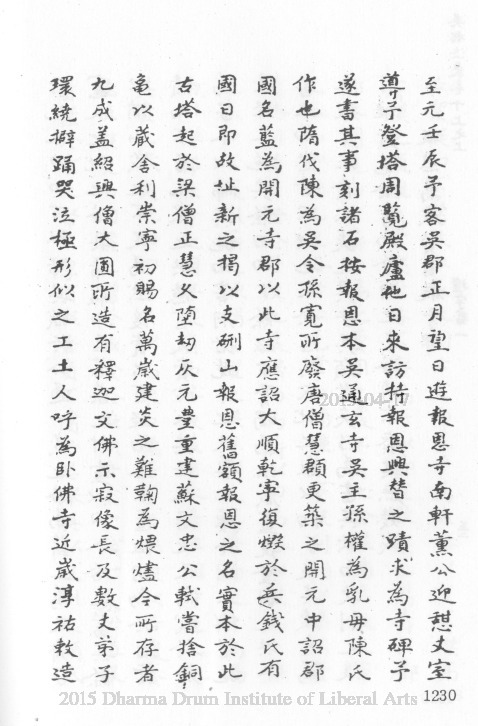 至元壬辰予客吳郡正月望日遊報恩寺南軒薰公迎憇丈室
導予登塔周覽殿廬他日來訪持報恩興替之蹟求為寺碑予
遂書其事刻諸石按報恩本吳通玄寺吳主孫權為乳母陳氏
作也隋伐陳為吳令孫寬所廢唐僧慧頵更築之開元中詔郡
國名藍為開元寺郡以此寺應詔大順乾寧復燬於兵錢氏有
國日即故址新之揭以支硎山報恩舊額報恩之名實本於此
古塔起於梁僧正慧久墮劫灰元豊重建蘇文忠公軾嘗捨銅
龜以藏舍利崇寧初賜名萬歲建炎之難鞠為煨燼今所存者
九成盖紹興僧大圓所造有釋迦文佛示寂像長及數丈弟子
環繞擗踊哭泣極形似之工土人呼為卧佛寺近歲淳祐敕造
2015-04-17
2015 Dharma Drum Institute of Liberal Arts
1230